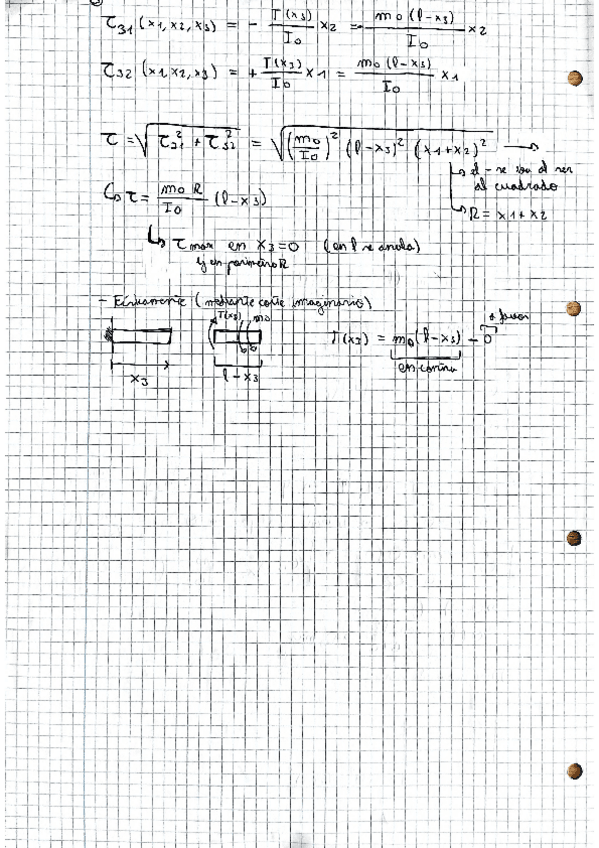 τ31 (x1, x2, x3) = - T(x3)/I0 x2 = - m0 (l-x3)/I0 x2
τ32 (x1, x2, x3) = + T(x3)/I0 x1 = m0 (l-x3)/I0 x1
τ = √(τ31² + τ32²) = √((m0/I0)² (l-x3)² (x1+x2)²) →
↳ el - se va al ser al cuadrado
↳ R = x1+x2
↳ τ = m0 R/I0 (l-x3)
↳ τmax en x3=0 (en l se anula)
y en
- (mediante corte imaginario)
T(x3) m0
x3
l-x3
T(x3) = m0 (l-x3) - 0
a favor
en contra